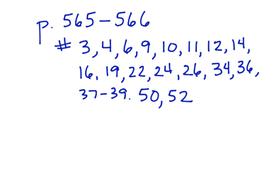 p. 565-566
# 3, 4, 6, 9, 10, 11, 12, 14,
16, 19, 22, 24, 26, 34, 36,
37-39. 50, 52